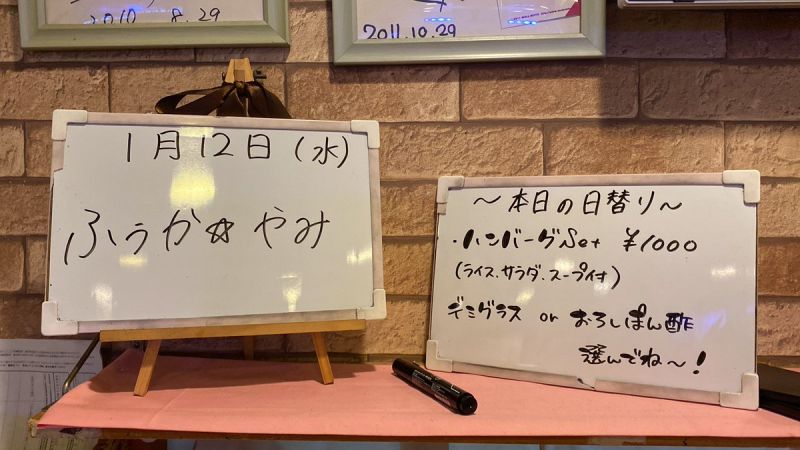 2010 8.29
2011.10.29
1月12日(水)
ふうか☆やみ
~本日の日替り~
・ハンバーグSet ¥1000
(ライス、サラダ、スープ付)
デミグラス or おろしぽん酢
選んでね~!